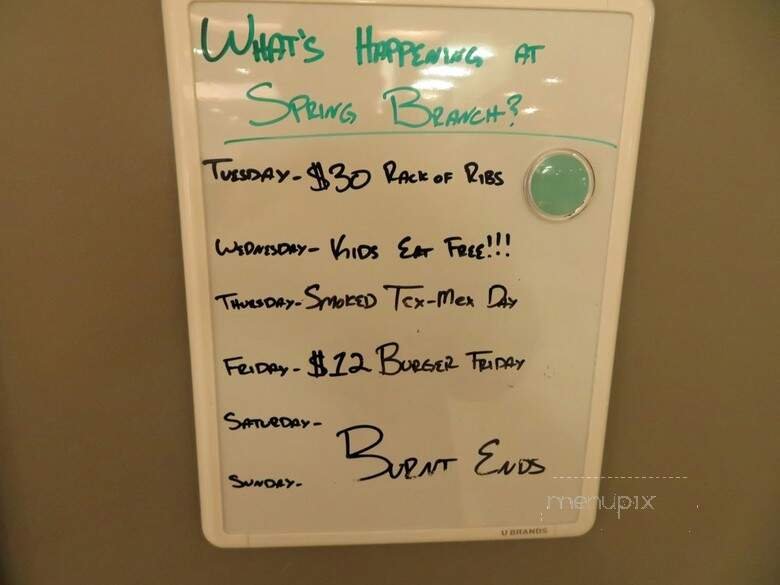 WHAT'S HAPPENING AT
SPRING BRANCH?
TUESDAY - $30 RACK OF RIBS
WEDNESDAY - KIDS EAT FREE!!!
THURSDAY - SMOKED TEX-MEX DAY
FRIDAY - $12 BURGER FRIDAY
SATURDAY -
BURNT ENDS
SUNDAY -
menupix
U BRANDS